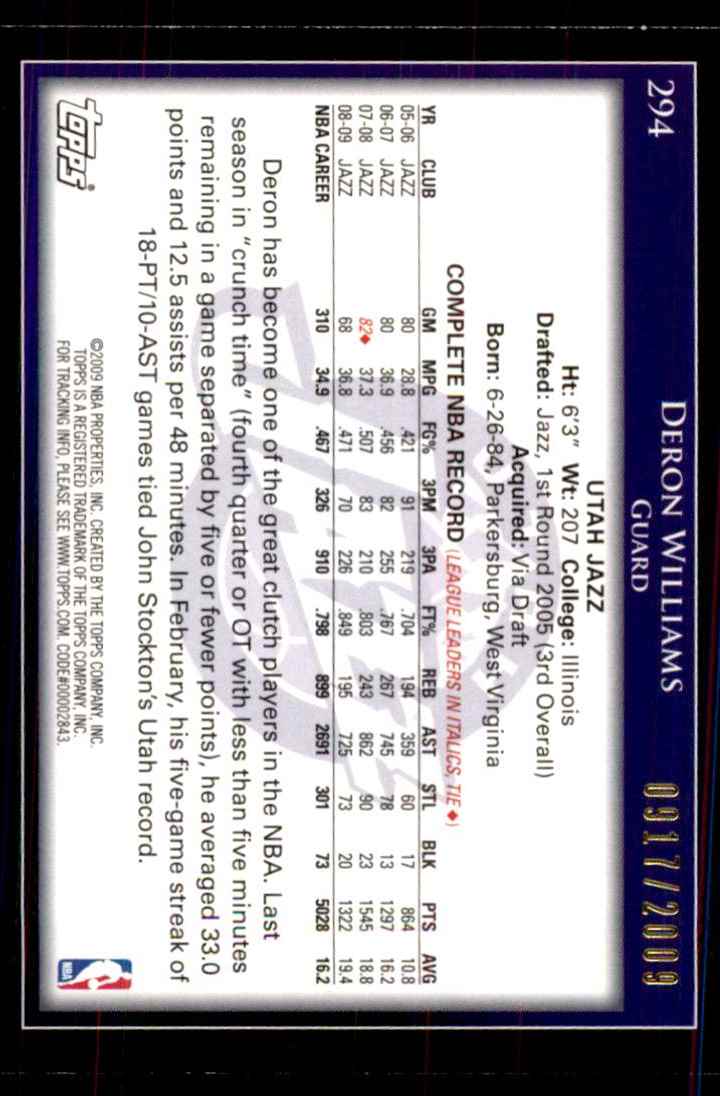 294
DERON WILLIAMS
GUARD
0917/2009
UTAH JAZZ
Ht: 6'3" Wt: 207 College: Illinois
Drafted: Jazz, 1st Round 2005 (3rd Overall)
Acquired: Via Draft
Born: 6-26-84, Parkersburg, West Virginia
COMPLETE NBA RECORD (LEAGUE LEADERS IN ITALICS, TIE ♦)
YR CLUB GM MPG FG% 3PM 3PA FT% REB AST STL BLK PTS AVG
05-06 JAZZ 80 28.8 .421 91 219 .704 194 359 60 17 864 10.8
06-07 JAZZ 80 36.9 .456 82 255 .767 267 745 78 13 1297 16.2
07-08 JAZZ 82♦ 37.3 .507 83 210 .803 243 862 90 23 1545 18.8
08-09 JAZZ 68 36.8 .471 70 226 .849 195 725 73 20 1322 19.4
NBA CAREER 310 34.9 .467 326 910 .798 899 2691 301 73 5028 16.2
Deron has become one of the great clutch players in the NBA. Last
season in "crunch time" (fourth quarter or OT with less than five minutes
remaining in a game separated by five or fewer points), he averaged 33.0
points and 12.5 assists per 48 minutes. In February, his five-game streak of
18-PT/10-AST games tied John Stockton's Utah record.
topps®
©2009 NBA PROPERTIES, INC. CREATED BY THE TOPPS COMPANY, INC.
TOPPS IS A REGISTERED TRADEMARK OF THE TOPPS COMPANY, INC.
FOR TRACKING INFO, PLEASE SEE WWW.TOPPS.COM. CODE#00002843.
NBA